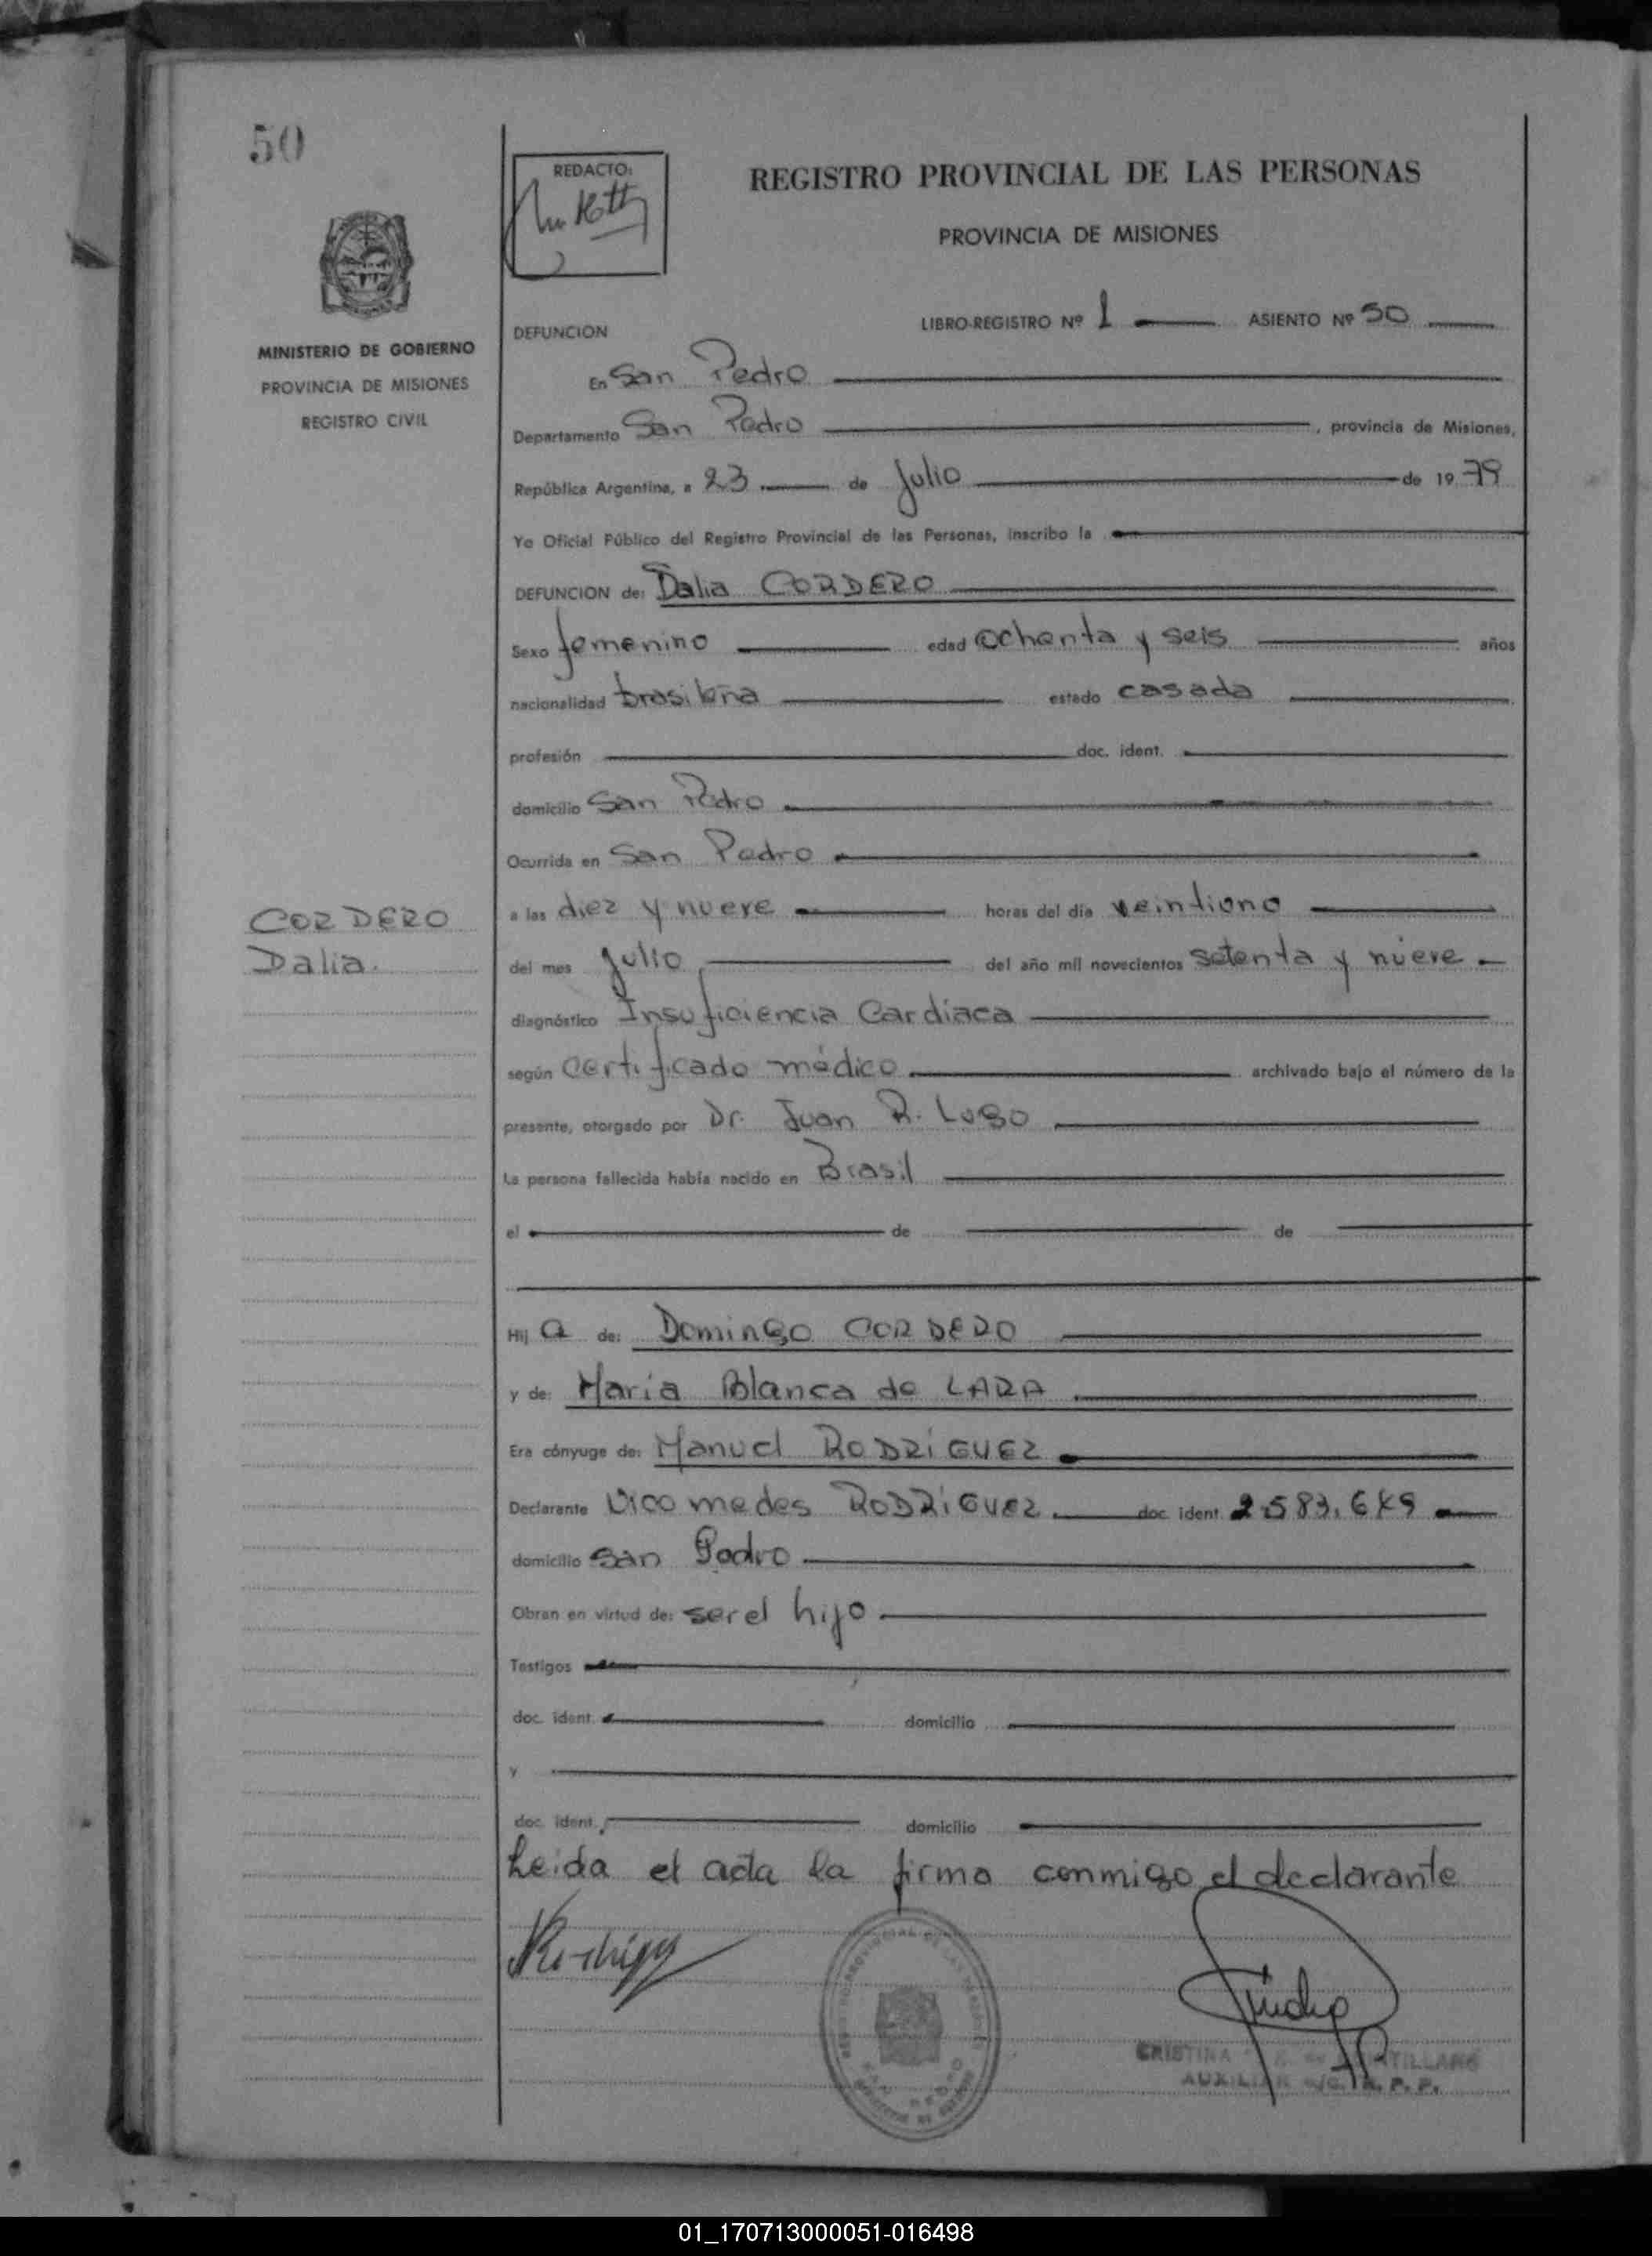 50
REDACTO:
REGISTRO PROVINCIAL DE LAS PERSONAS
PROVINCIA DE MISIONES
MINISTERIO DE GOBIERNO
PROVINCIA DE MISIONES
REGISTRO CIVIL
DEFUNCION
LIBRO-REGISTRO Nº 1 ASIENTO Nº 50
En San Pedro
Departamento San Pedro, provincia de Misiones,
República Argentina, a 23 de Julio de 1979
Yo Oficial Público del Registro Provincial de las Personas, inscribo la
DEFUNCION de: Dalia CORDERO
Sexo femenino edad ochenta y seis años
nacionalidad brasileña estado casada
profesión doc. ident.
domicilio San Pedro
Ocurrida en San Pedro
CORDERO
Dalia.
a las diez y nueve horas del día veintiuno
del mes Julio del año mil novecientos setenta y nueve
diagnóstico Insuficiencia Cardiaca
según certificado médico archivado bajo el número de la
presente, otorgado por Dr. Juan R. Lugo
La persona fallecida había nacido en Brasil
el de de
Hij a de: Domingo CORDERO
y de: Maria Blanca de LARA
Era cónyuge de: Manuel RODRIGUEZ
Declarante RODRIGUEZ doc. ident.
domicilio San Pedro
Obran en virtud de: ser el hijo
Testigos
doc. ident. domicilio
y
doc. ident. domicilio
Leida el acta la firma conmigo el declarante
CRISTINA
AUXILIAR
01_170713000051-016498